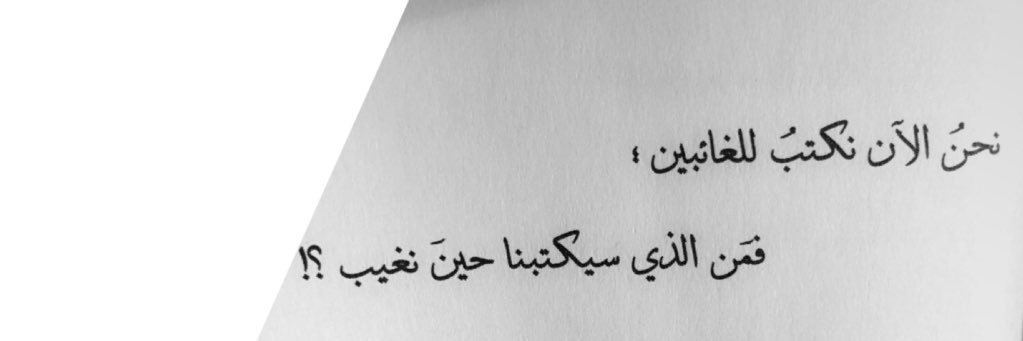 نحنُ الآن نكتبُ للغائبين ؛
فمَن الذي سيكتبنا حينَ نغيب ؟!